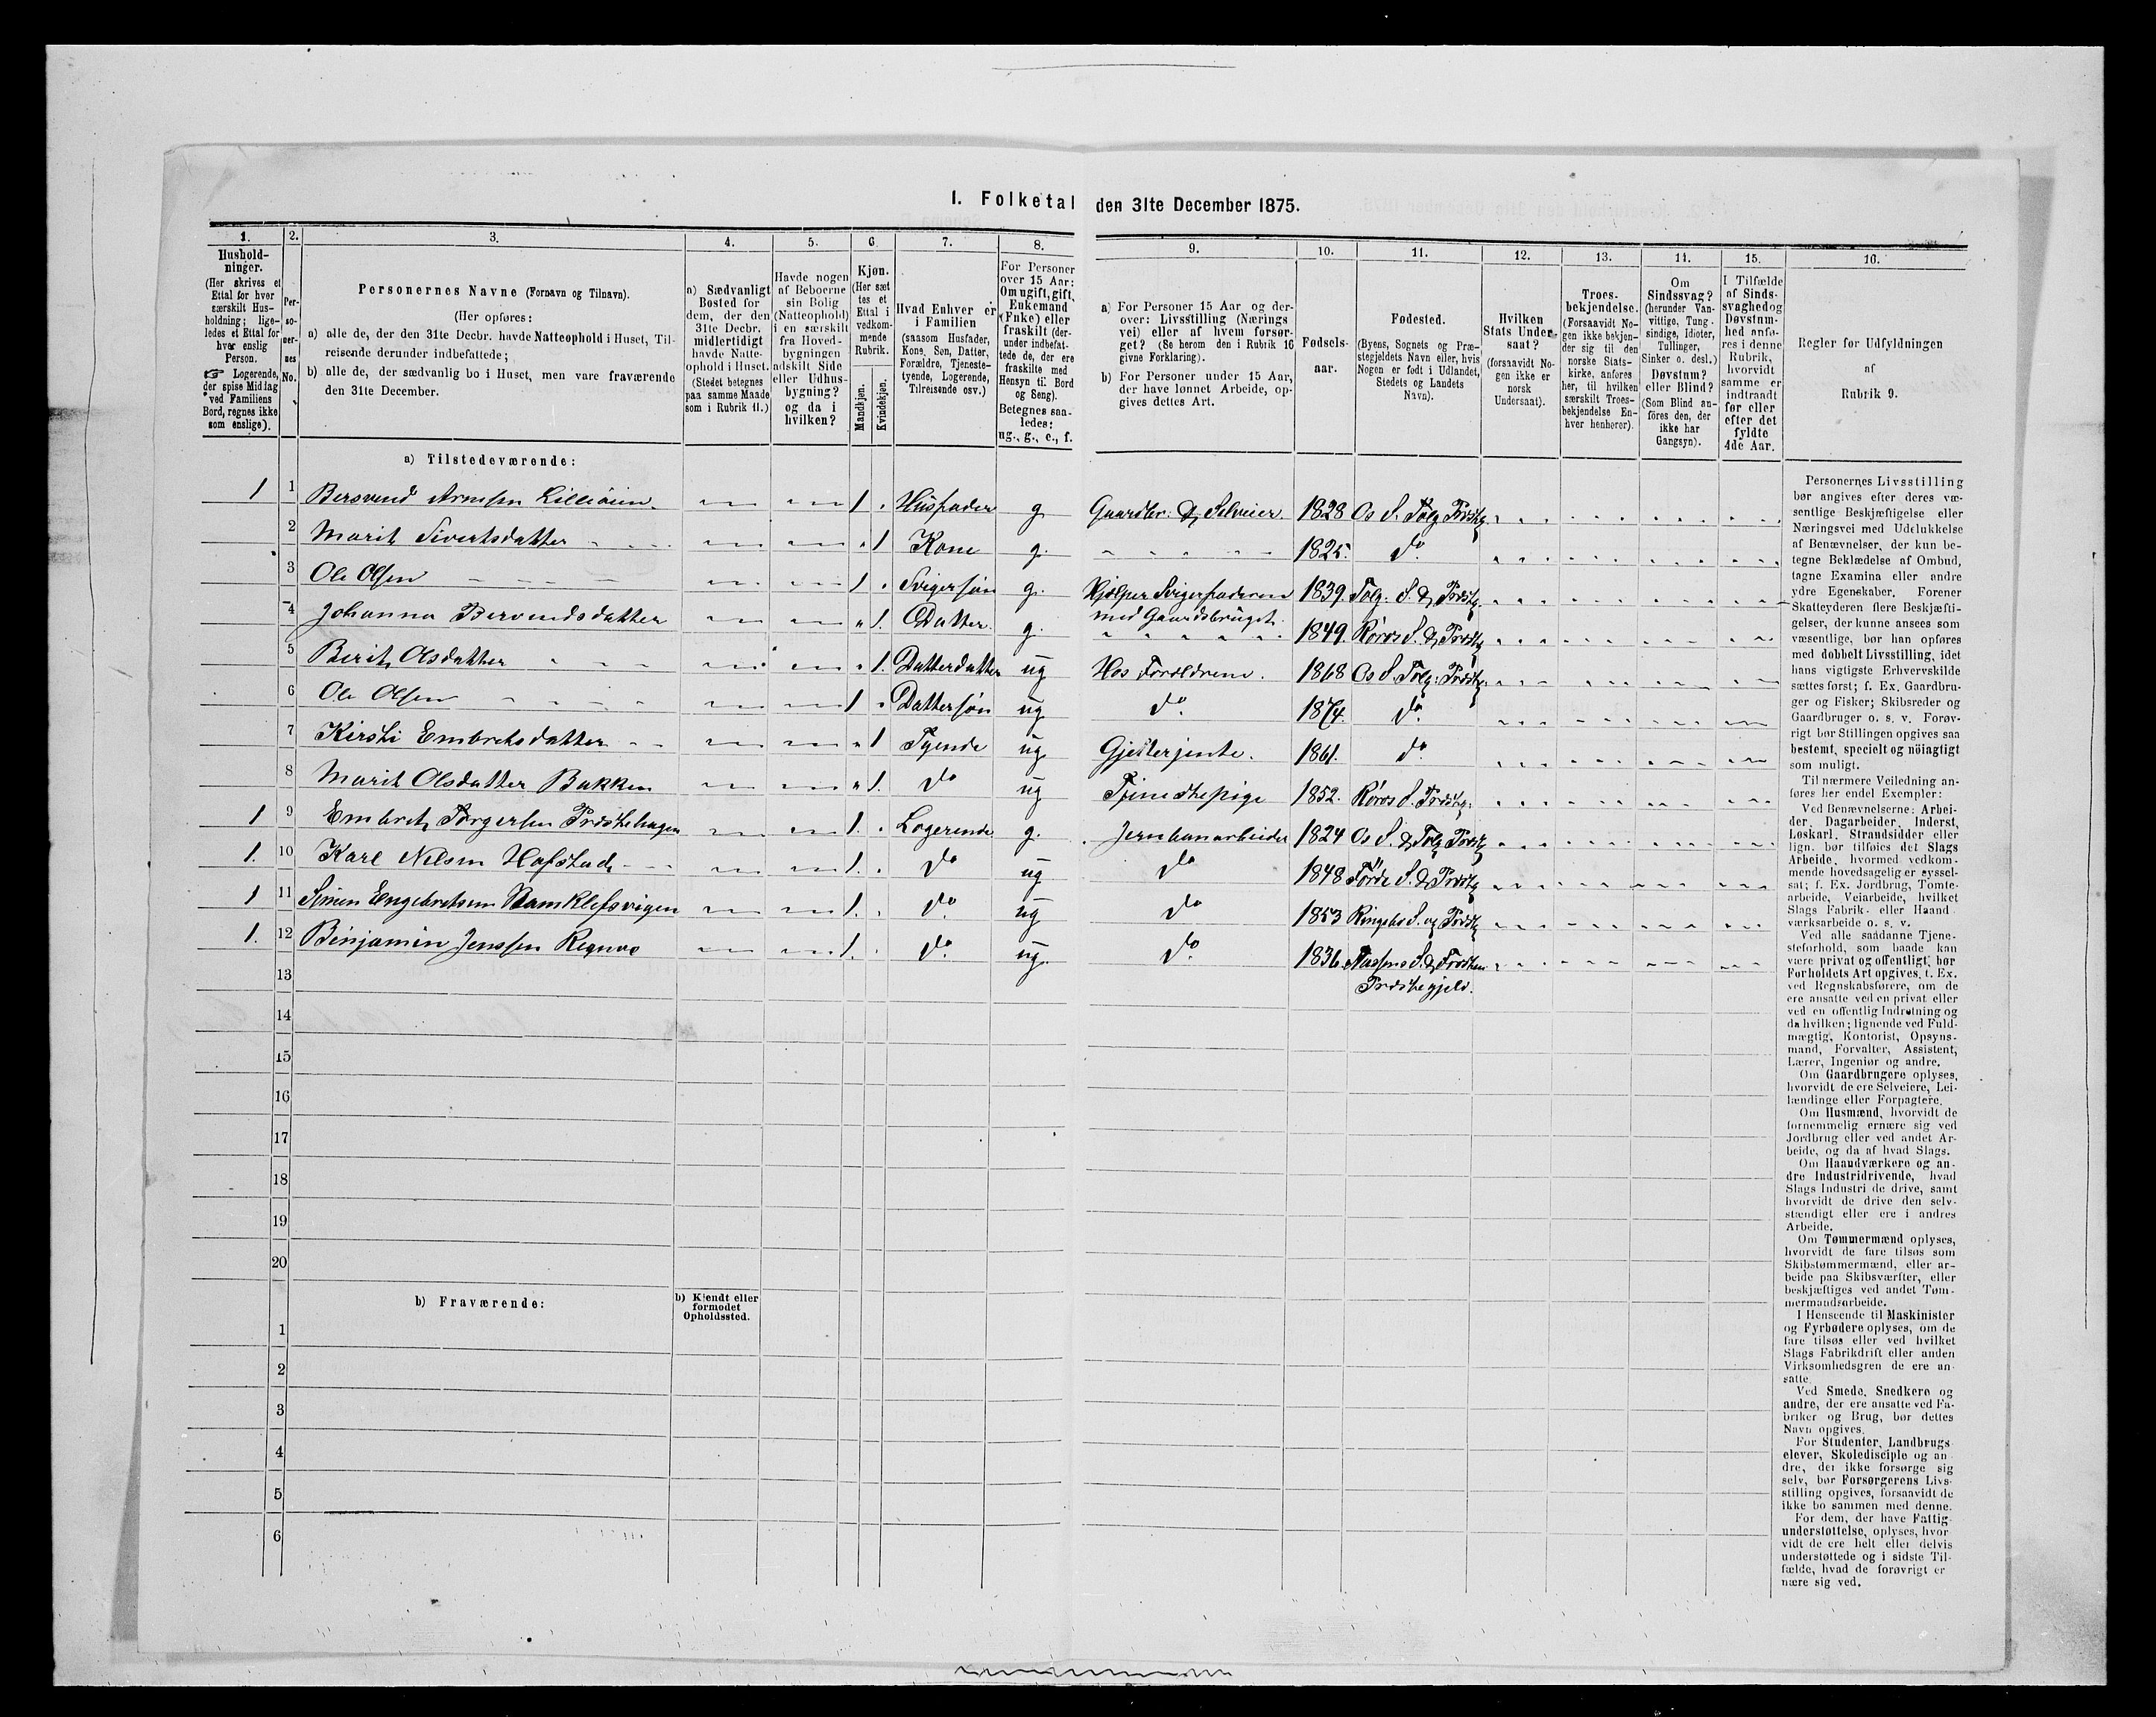 I. Folketal den 31te December 1875.
1. 2. 3. 4. 5. 6. 7. 8. 9. 10. 11. 12. 13. 14. 15. 16.
Hushold-
ninger.
(Her skrives et
Ettal for hver
særskilt Hus-
holdning; lige-
ledes et Ettal for
hver enslig
Person.
☞ Logerende,
der spise Middag
ved Familiens
Bord, regnes ikke
som enslige).
Per-
so-
ner-
nes
No.
Personernes Navne (Fornavn og Tilnavn).
(Her opføres:
a) alle de, der den 31te Decbr. havde Natteophold i Huset, Til-
reisende derunder indbefattede;
b) alle de, der sædvanlig bo i Huset, men vare fraværende
den 31te December.
a) Sædvanligt
Bosted for
dem, der den
31te Decbr.
midlertidigt
havde Natte-
ophold i Huset.
(Stedet betegnes
paa samme Maade
som i Rubrik 11.)
Havde nogen
af Beboerne
sin Bolig
(Natteophold)
i en særskilt
fra Hoved-
bygningen
adskilt Side
eller Udhus-
bygning?
og da i
hvilken?
Kjøn.
(Her sæt
tes et
Ettal i
vedkom-
mende
Rubrik.
Mandkjøn.
Kvindekjøn.
Hvad Enhver er
i Familien
(saasom Husfader,
Kone, Søn, Datter,
Forældre, Tjeneste-
tyende, Logerende,
Tilreisende osv.)
For Personer
over 15 Aar:
Om ugift, gift,
Enkemand
(Enke) eller
fraskilt (der-
under indbefat-
tede de, der ere
fraskilte med
Hensyn til Bord
og Seng).
Betegnes saa-
ledes:
ug., g., e., f.
a) For Personer 15 Aar og der-
over: Livsstilling (Nærings
vei) eller af hvem forsør-
get? (Se herom den i Rubrik 16
givne Forklaring).
b) For Personer under 15 Aar,
der have lønnet Arbeide, op-
gives dettes Art.
Fødsels-
aar.
Fødested.
(Byens, Sognets og Præ-
stegjeldets Navn eller, hvis
Nogen er født i Udlandet,
Stedets og Landets
Navn).
Hvilken
Stats Under-
saat?
(forsaavidt No-
gen ikke er
norsk
Undersaat).
Troes-
bekjendelse.
(Forsaavidt No-
gen ikke bekjen-
der sig til den
norske Stats-
kirke, anføres
her, til hvilken
særskilt Troes-
bekjendelse En-
hver henhører).
Om
Sindssvag?
(herunder Van-
vittige, Tung-
sindige, Idioter,
Tullinger,
Sinker o. desl.)
Døvstum?
eller Blind?
(Som Blind an-
føres den, der
ikke har
Gangsyn).
I Tilfælde
af Sinds-
svaghed og
Døvstum-
hed anfø-
res i denne
Rubrik,
hvorvidt
samme er
indtraadt
før eller
efter det
fyldte
4de Aar.
Regler for Udfyldningen
af
Rubrik 9.
a) Tilstedeværende:
1 1 Bersvend Arnesen Lilleøien 1 Husfader g Gaardbr. & Selveier. 1828 Os S. Tolg. Præstg
2 Marit Sivertsdatter 1 Kone g. 1825. do.
3 Ole Olsen 1 Svigersøn g. Hjelper Svigerfaderen 1839. Tolg. S. & Præstg.
med Gaardsbruget.
4 Johanna Bersvendsdatter 1. Datter g. 1849. Røros S. & Præstg
5 Berit Olsdatter 1. Datterdatter ug Hos Forældrene. 1868 Os S. Tolg. Præstg.
6 Ole Olsen 1 Dattersøn ug do. 1874. do.
7 Kirsti Embretsdatter 1 Tyende ug Gjeterjente. 1861. do.
8 Marit Olsdatter Bakken 1. do ug Tjenestepige 1852. Røros S. Præstg.
1 9 Embret Torgersen Præstehagen 1. Logerende g. Jernbanarbeider 1824 Os S. & Tolg. Præstg
1. 10 Karl Nilsen Hofstad 1. do ug do 1848 Førde S. & Præstg
1 11 Simen Engebretsen 1. do. ug do 1853 Ringebo S. og Præstg
1. 12 Benjamin Jenssen 1. do. ug. do. 1836 S. &
Præstegjeld.
13
14
15
16
17
18
19
20
b) Fraværende:
b) Kjendt eller
formodet
Opholdssted.
1
2
3
4
5
6
Personernes Livsstilling
bør angives efter deres væ-
sentlige Beskjæftigelse eller
Næringsvei med Udelukkelse
af Benævnelser, der kun be-
tegne Beklædelse af Ombud,
tagne Examina eller andre
ydre Egenskaber. Forener
Skatteyderen flere Beskjæfti-
gelser, der kunne ansees som
væsentlige, bør han opføres
med dobbelt Livsstilling, idet
hans vigtigste Erhvervskilde
sættes først; f. Ex. Gaardbru-
ger og Fisker; Skibsreder og
Gaardbruger o. s. v. Forøv-
rigt bør Stillingen opgives saa
bestemt, specielt og nøiagtigt
som muligt.
Til nærmere Veiledning an-
føres her endel Exempler:
Ved Benævnelserne: Arbei-
der, Dagarbeider, Inderst,
Løskarl, Strandsidder eller
lign. bør tilføies det Slags
Arbeide, hvormed vedkom-
mende hovedsagelig er syssel-
sat; f. Ex. Jordbrug, Tomte-
arbeide, Veiarbeide, hvilket
Slags Fabrik- eller Haand
værksarbeide o. s. v.
Ved alle saadanne Tjene-
steforhold, som baade kan
være privat og offentligt, bør
Forholdets Art opgives, f. Ex.
ved Regnskabsførere, om de
ere ansatte ved en privat eller
ved en offentlig Indretning og
da hvilken; lignende ved Fuld-
mægtig, Kontorist, Opsyns-
mand, Forvalter, Assistent,
Lærer, Ingeniør og andre.
Om Gaardbrugere oplyses,
hvorvidt de ere Selveiere, Lei-
lændinge eller Forpagtere.
Om Husmænd, hvorvidt de
fornemmelig ernære sig ved
Jordbrug eller ved andet Ar-
beide, og da af hvad Slags.
Om Haandværkere og an-
dre Industridrivende, hvad
Slags Industri de drive, samt
hvorvidt de drive den selv-
stændigt eller ere i andres
Arbeide.
Om Tømmermænd oplyses,
hvorvidt de fare tilsøs som
Skibstømmermænd, eller ar-
beide paa Skibsværfter, eller
beskjæftiges ved andet Tøm-
mermandsarbeide.
I Henseende til Maskinister
og Fyrbødere oplyses, om de
fare tilsøs eller ved hvilket
Slags Fabrikdrift eller anden
Virksomhedsgren de ere an-
satte.
Ved Smede, Snedkere og
andre, der ere ansatte ved Fa-
briker og Brug, bør dettes
Navn opgives.
For Studenter, Landbrugs
elever, Skoledisciple og an
dre, der ikke forsørge sig
selv, bør Forsørgerens Livs-
stilling opgives, forsaavidt de
ikke bo sammen med denne.
For dem, der have Fattig-
understøttelse, oplyses, hvor
vidt de ere helt eller delvis
understøttede og i sidste Til-
fælde, hvad de forøvrigt er
nære sig ved.